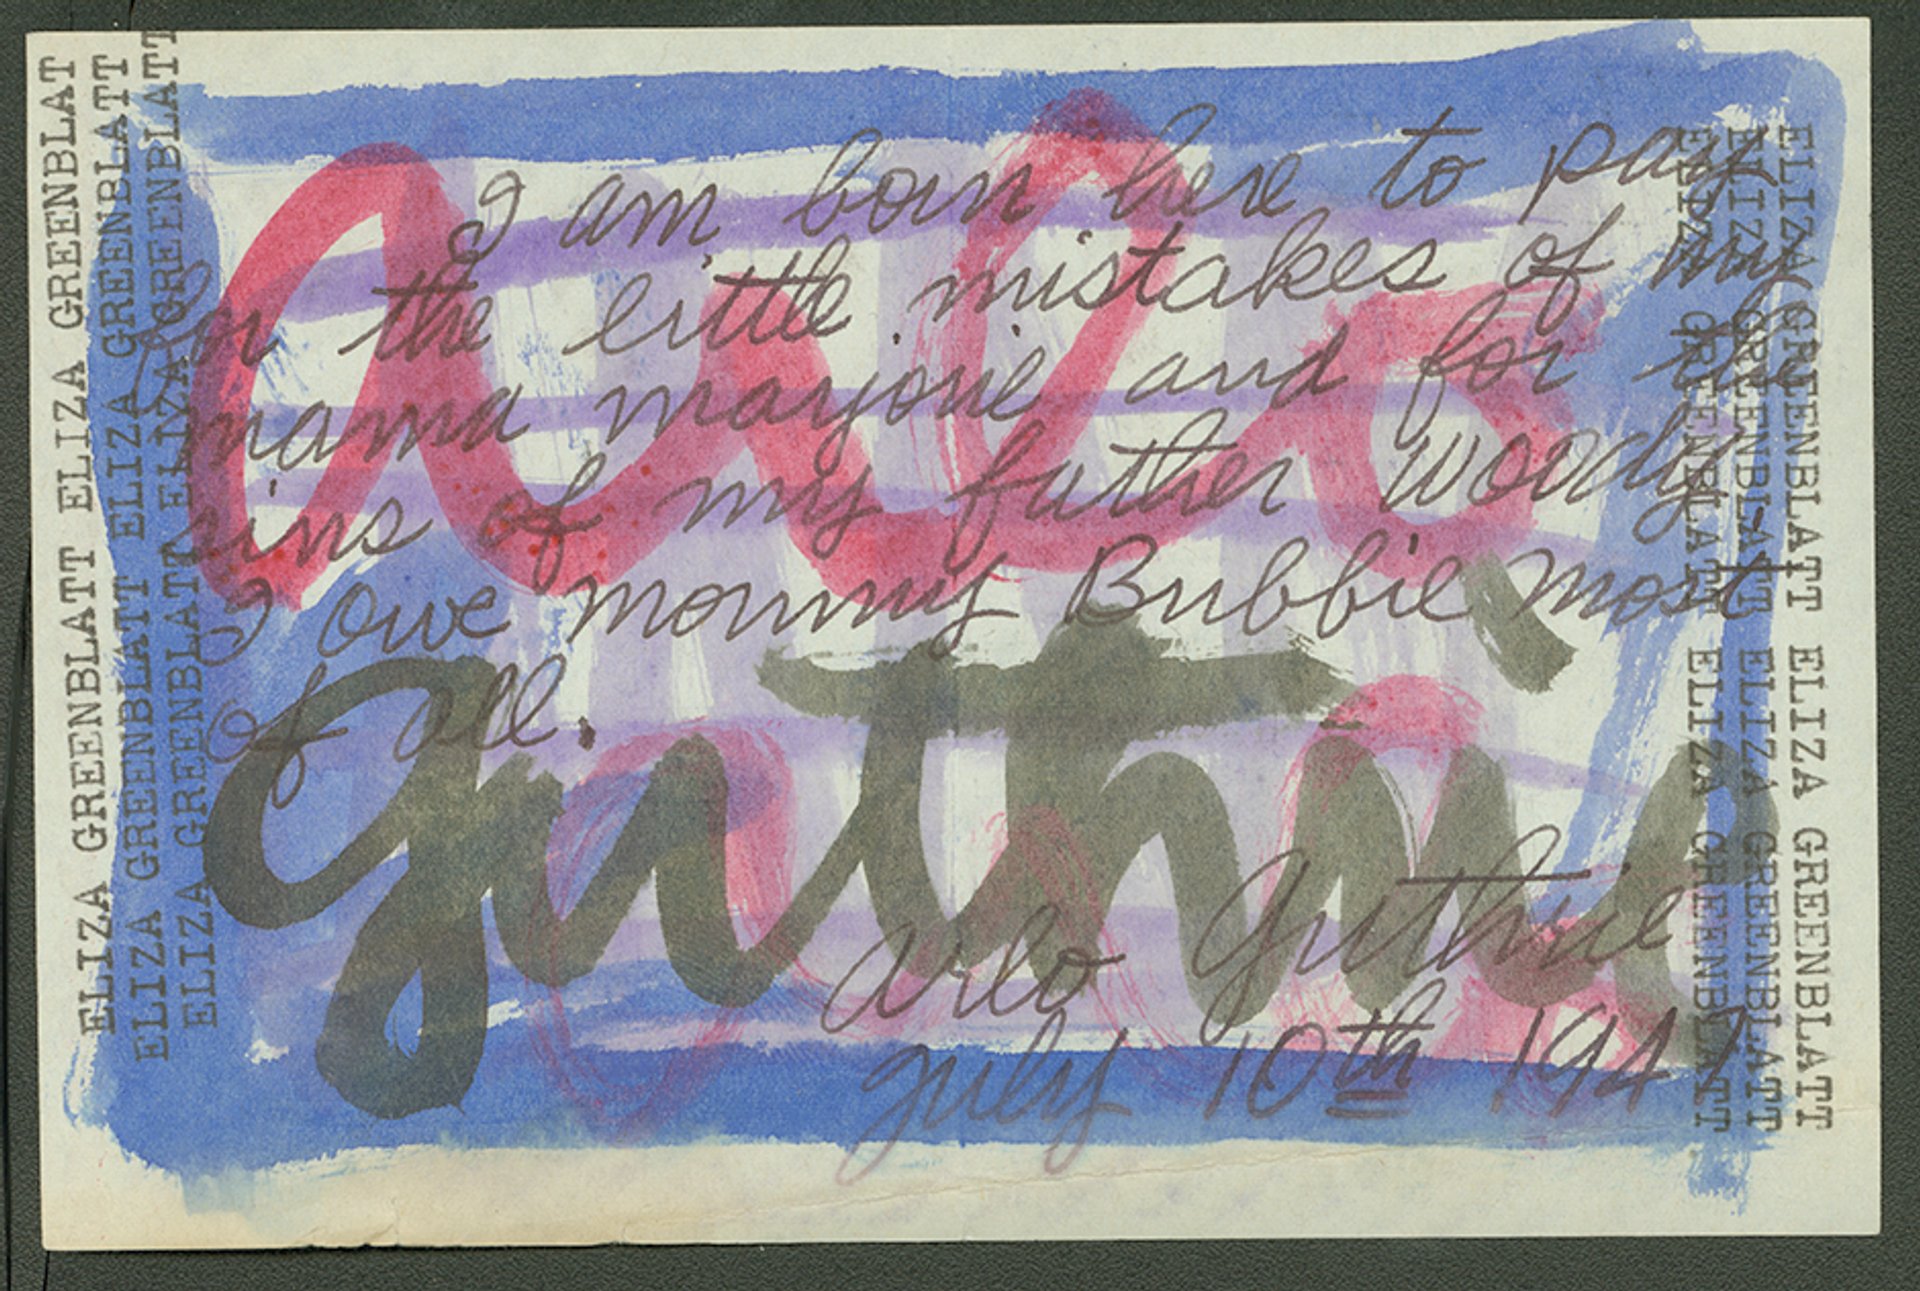 ELIZA GREENBLATT ELIZA GREENBLAT
ELIZA GREENBLATT ELIZA GREENBLATT
ELIZA GREENBLATT ELIZA GREENBLATT
arlo
guthrie
I am born here to pay
for the little mistakes of my
mama marjorie and for the
sins of my father woody
I owe mommy Bubbie most
of all.
Arlo Guthrie
July 10th 1947
ELIZA GREENBLATT ELIZA GREENBLATT
ELIZA GREENBLATT ELIZA GREENBLATT
ELIZA GREENBLATT ELIZA GREENBLATT